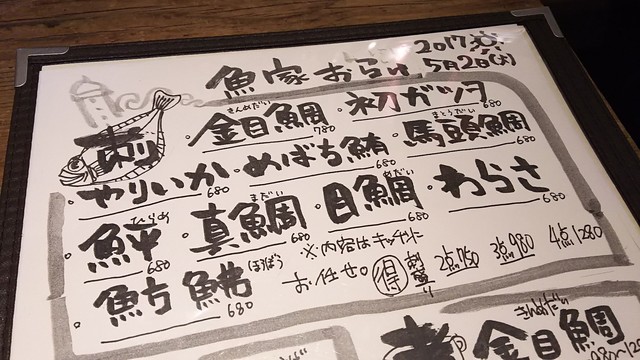 魚家おらい 2017
5月2日(火)
刺
きんめだい
・金目鯛 780
・初ガツオ 680
・やりいか 680
・めばち鮪 680
まとうだい
・馬頭鯛 680
ひらめ
・鮃 680
まだい
・真鯛 680
めだい
・目鯛 680
・わらさ 680
・魴鮄 ほうぼう 680
※内容はキッチンに
お任せ。
得 刺盛り 2点750 3点980 4点1280
きんめだい
金目鯛